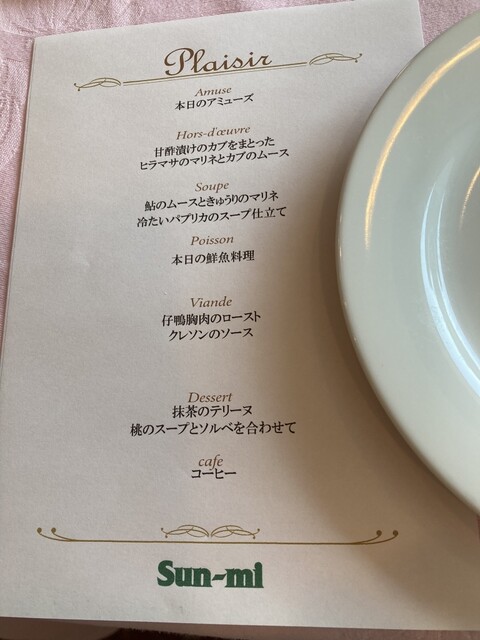 Plaisir
Amuse
本日のアミューズ
Hors-d'œuvre
甘酢漬けのカブをまとった
ヒラマサのマリネとカブのムース
Soupe
鮎のムースときゅうりのマリネ
冷たいパプリカのスープ仕立て
Poisson
本日の鮮魚料理
Viande
仔鴨胸肉のロースト
クレソンのソース
Dessert
抹茶のテリーヌ
桃のスープとソルベを合わせて
cafe
コーヒー
Sun-mi